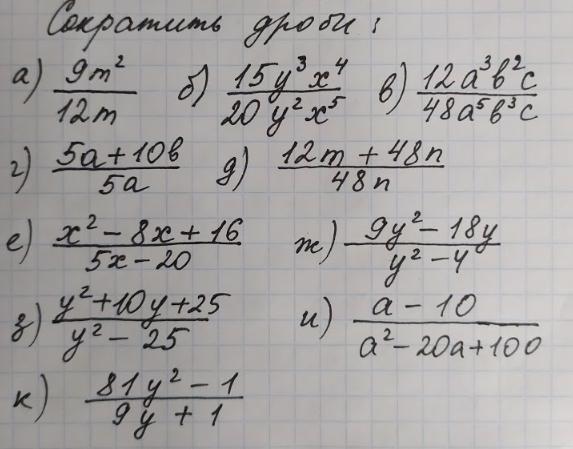 Сократить дроби:
а) 9m²/12m б) 15y³x⁴/20y²x⁵ в) 12a³b²c/48a⁵b³c
г) 5a+10b/5a д) 12m + 48n/48n
е) x² - 8x + 16/5x - 20 ж) 9y² - 18y/y² - 4
з) y² + 10y + 25/y² - 25 и) a - 10/a² - 20a + 100
к) 81y² - 1/9y + 1